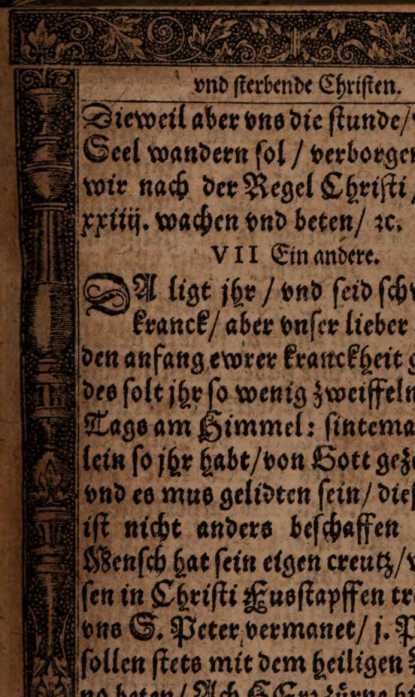 vnd sterbende Christen.
Dieweil aber vns die stunde/
Seel wandern sol / verborgen
wir nach der Regel Christi/
xxiiij. wachen vnd beten/ ꝛc.
VII Ein andere.
DA ligt jhr / vnd seid
kranck/ aber vnser lieber
den anfang ewrer kranckheit
des solt jhr so wenig zweiffeln
Tags am Himmel: sintemal
lein so jhr habt/von Gott
vnd es mus gelidten sein/
ist nicht anders beschaffen
Mensch hat sein eigen creutz/
sen in Christi Fusstapffen
vns S. Peter vermanet/ j.
sollen stets mit dem heiligen